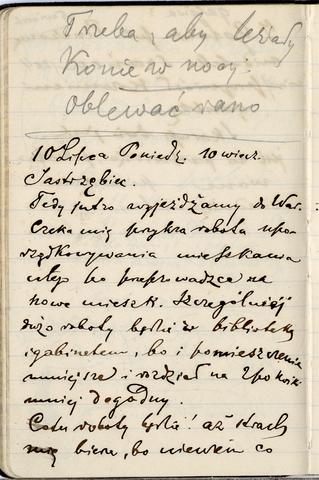 Trzeba, aby
Konie w nocy
oblewać rano
10 Lipca Poniedz. 10 wiecz.
Jastrzębiec.
Tedy jutro wyjeżdżamy do War.
Czeka mię przykra robota upo-
rządkowywania mieszkania
po przeprowadzce na
nowe mieszk. Szczególniej
dużo roboty będzie z biblioteką
i gabinetem, bo i pomieszczenie
mniejsze i rozdział na 2 pokoiki
mniej dogodny.
Co tu roboty będzie! aż strach
mię bierze, bo niewiem co